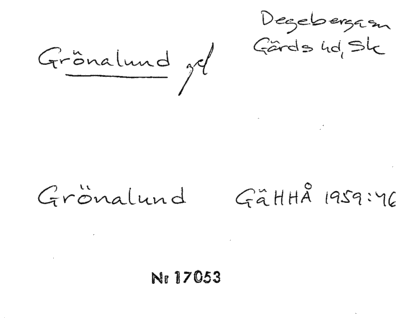 Grönalund gd
Degeberga sn
Gärds hd, Sk
Grönalund GäHHÅ 1959:46
Nr 17053